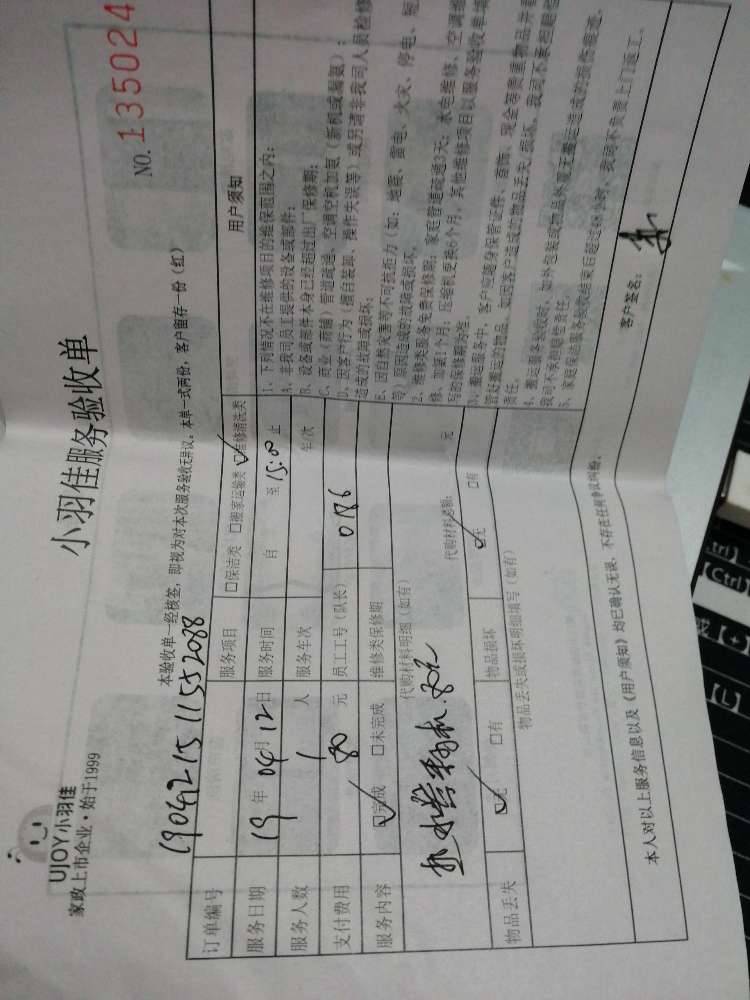 UJOY小羽佳
家政上市企业·始于1999
小羽佳服务验收单
NO. 135024
本验收单一经核签，即视为对本次服务验收无异议。本单一式两份，客户留存一份（红）
订单编号
服务项目 □保洁类 □搬家运输类 ☑维修清洗类
服务日期 19 年 04 月 12 日 服务时间 自 至 15:00 止
服务人数 1 人 服务车次 车/次
支付费用 80 元 员工工号（队长） 0186
服务内容 ☑完成 □未完成 维修类保修期
代购材料明细（如有） 代购材料总额： 元
物品丢失 ☑无 □有 物品损坏 ☑无 □有
物品丢失或损坏明细填写（如有）
用户须知
1、下列情况不在维修项目的维保范围之内：
A、非我司员工提供的设备或部件；
B、设备或部件本身已经超过出厂保修期；
C、商业（商铺）管道疏通、空调空机加氨（新机或漏氨）；
D、因客户行为（擅自装卸、操作失误等）或另请非我司人员检修
造成的故障或损坏；
E、因自然灾害等不可抗拒力（如：地震、雷电、火灾、停电、短
等）原因造成的故障或损坏。
2、维修类服务免费保修期：家庭管道疏通3天；水电维修、空调维
修、加氨1个月；压缩机更换6个月，其他维修项目以服务验收单填
写的保修期为准。
3、搬运服务中，客户应随身保管证件、首饰、现金等贵重物品并看
管好搬运的物品，如因客户造成的物品丢失、损坏，我司不承担赔偿
责任。
4、搬运服务验收时，如外包装或物品外观无搬运造成的损伤痕迹，
我司不承担赔偿责任。
5、家庭保洁服务验收结束后超过 小时，我司不负责上门返工。
本人对以上服务信息以及《用户须知》均已确认无误，不存在任何争议纠纷。
客户签名：
[Ctrl]